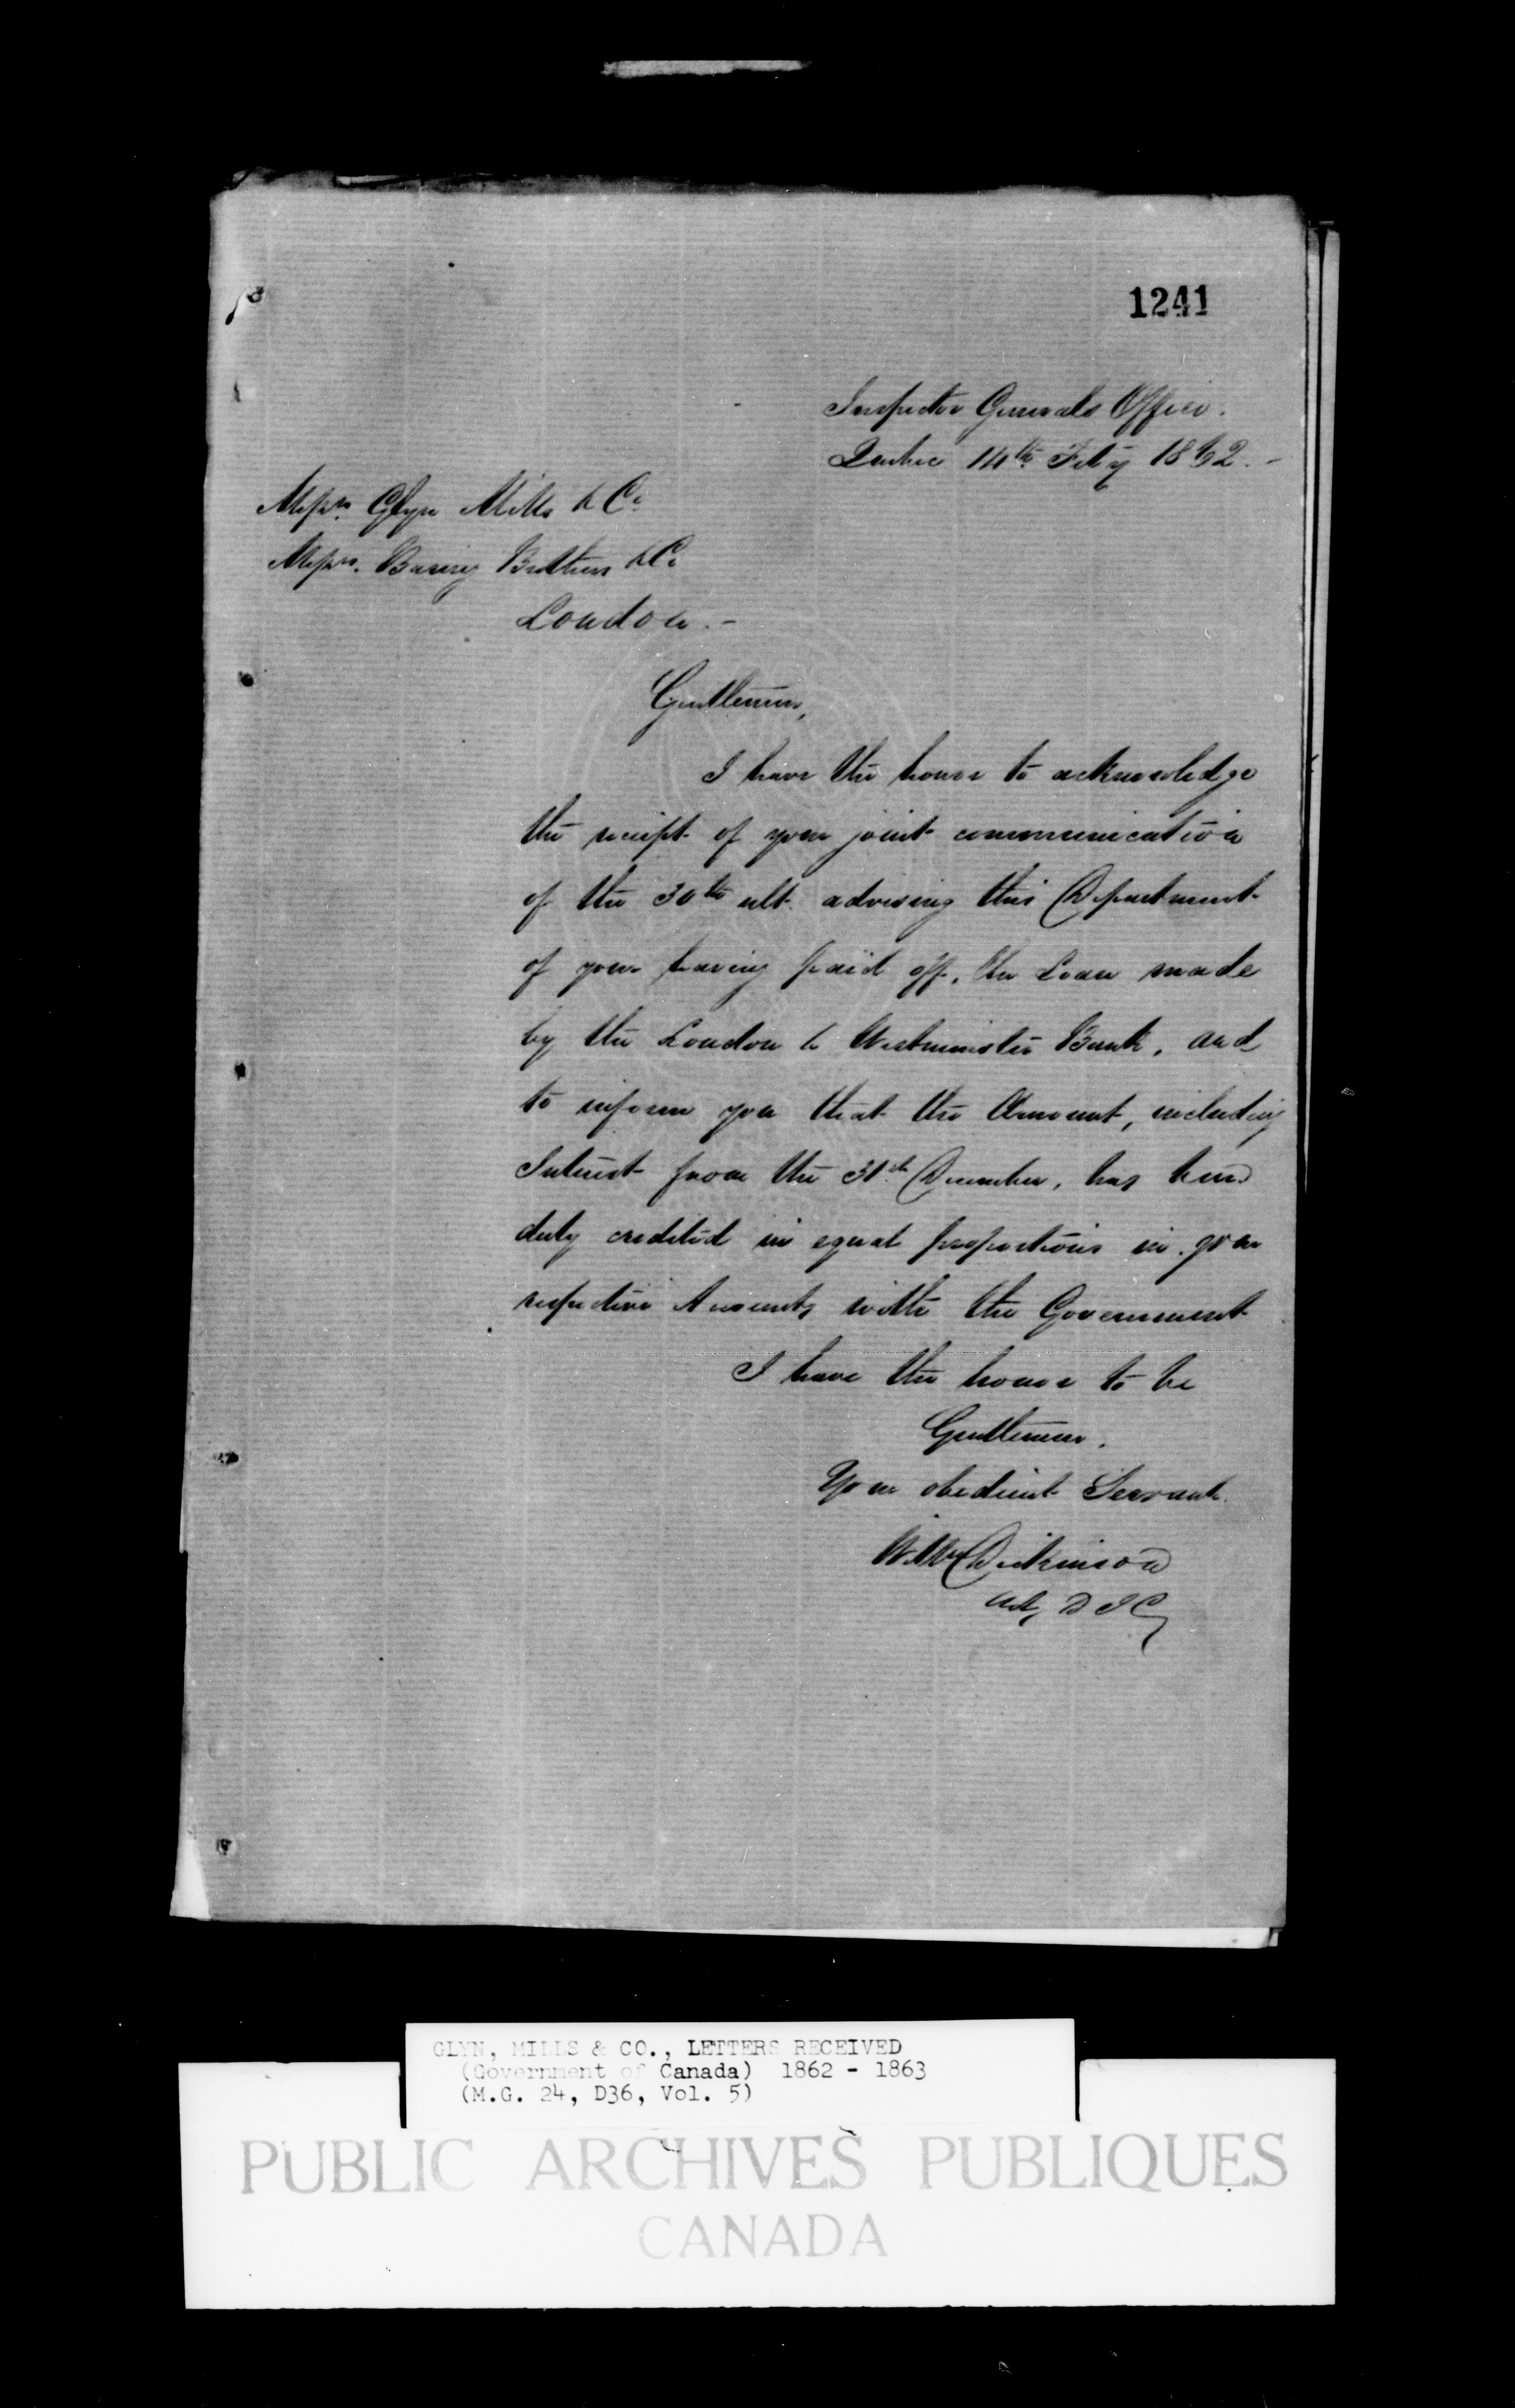 1241
Inspector Generals Office.
Quebec 14th Feby 1862. -
Messrs. Glyn Mills & Co
Messrs. Baring Brothers & Co
London. -
Gentlemen,
I have the honor to acknowledge
the receipt of your joint communication
of the 30th ult. advising this Department
of your having paid off, the Loan made
by the London & Westminster Bank, and
to inform you that the Amount, including
Interest from the 31st December, has been
duly credited in equal proportions in your
respective Accounts with the Government
I have the honor to be
Gentlemen.
Your obedient Servant.
Wm Dickinson
Actg D I G
GLYN, MILLS & CO., LETTERS RECEIVED
(Government of Canada) 1862 - 1863
(M.G. 24, D36, Vol. 5)
PUBLIC ARCHIVES PUBLIQUES
CANADA